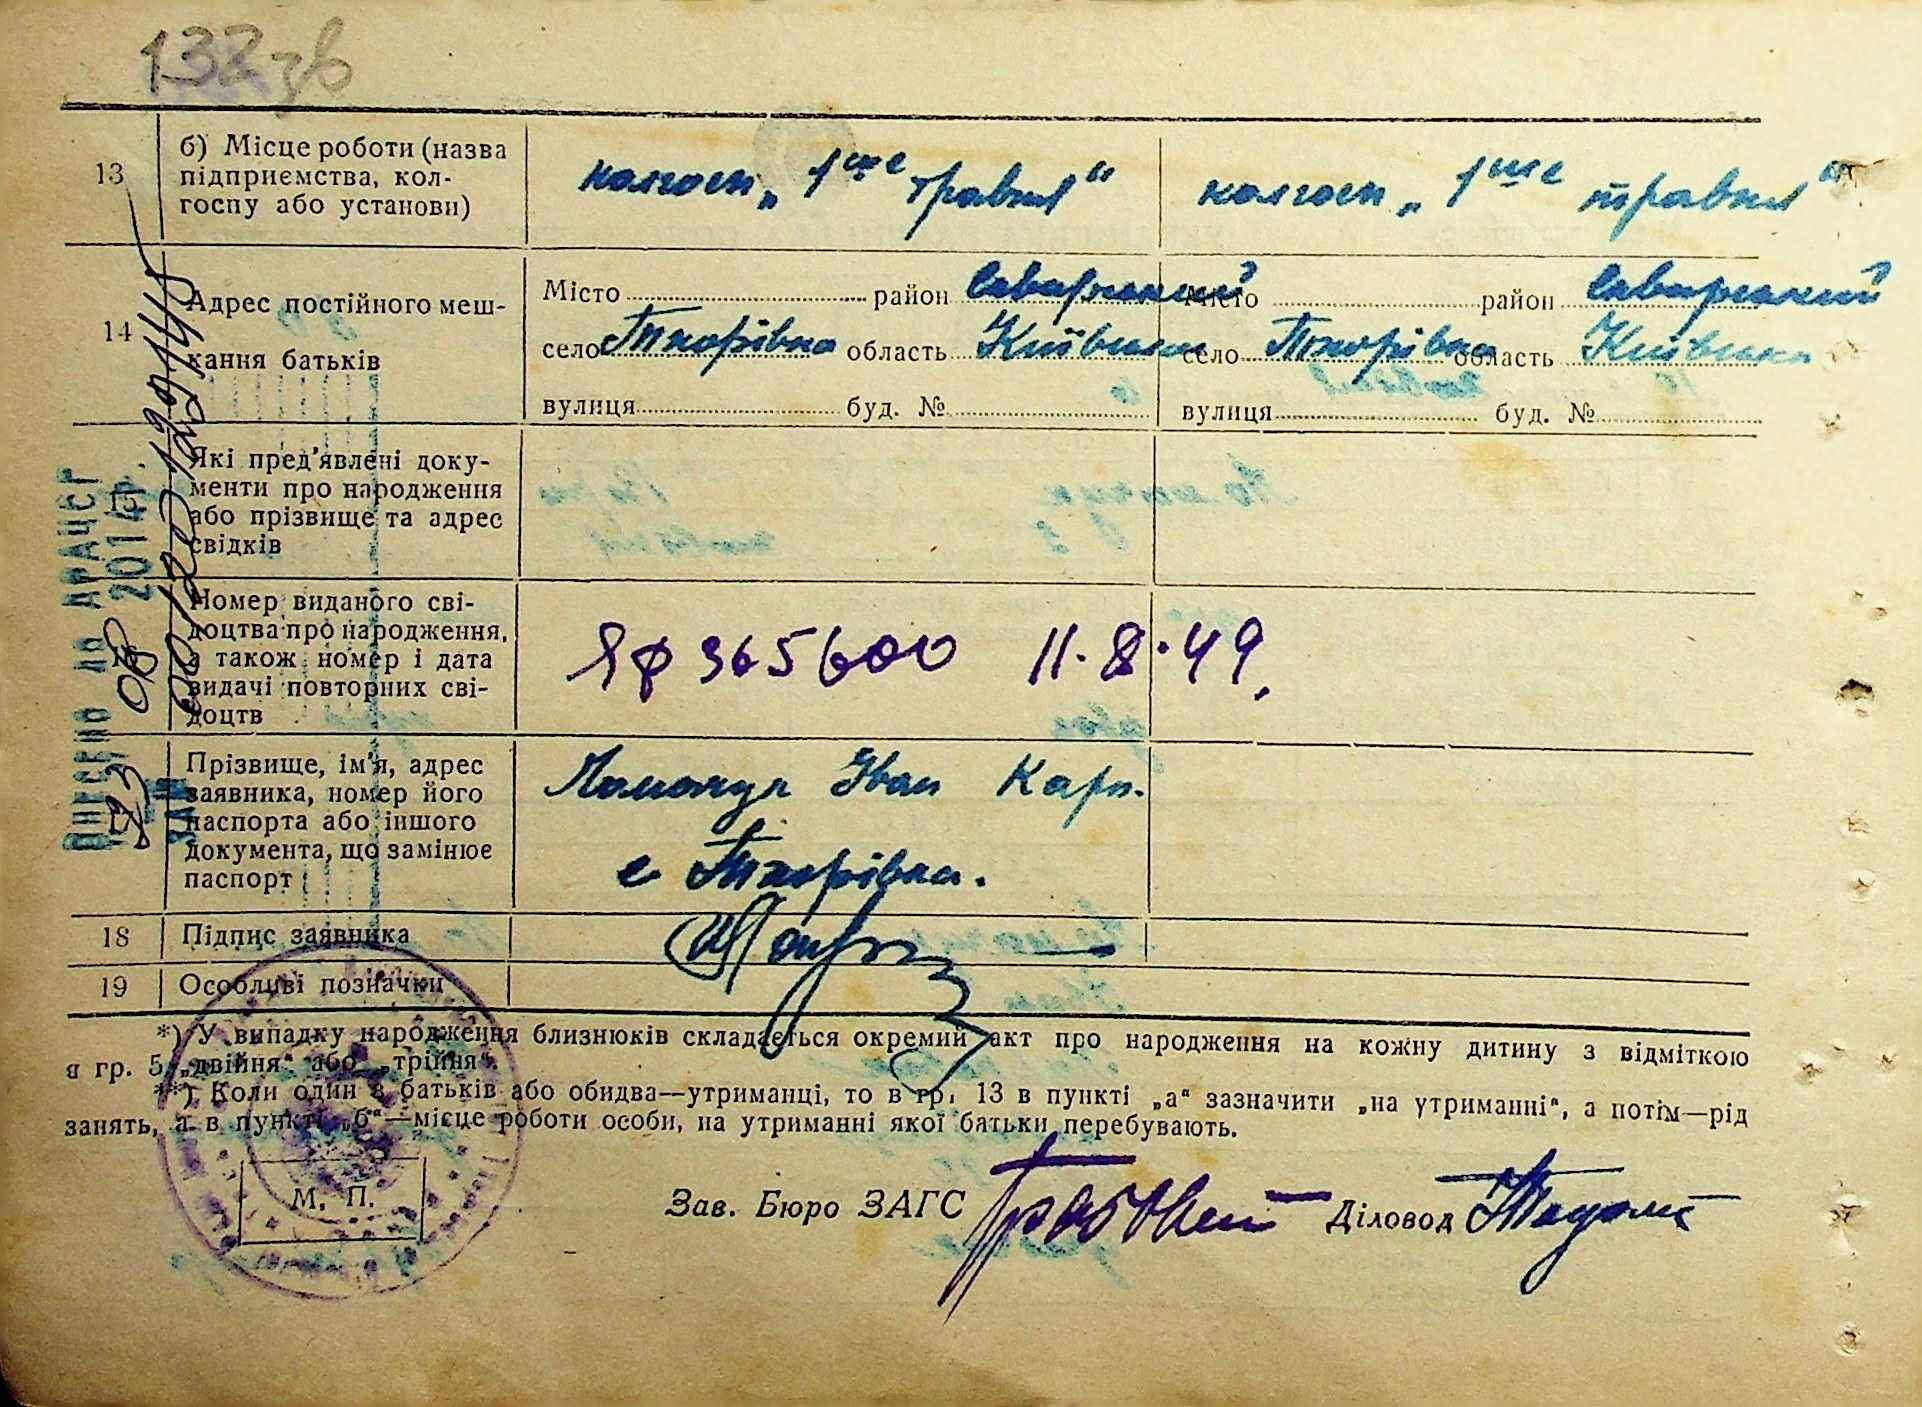 132зв
13
б) Місце роботи (назва
підприємства, кол-
госпу або установи)
колгосп „1ше травня“
колгосп „1ше травня“
14
Адрес постійного меш-
кання батьків
Місто район Ставищенський
село Тхорівка область Київська
вулиця буд. №
Місто район
село Тхорівка область Київська
вулиця буд. №
15
Які пред’явлені доку-
менти про народження
або прізвище та адрес
свідків
16
Номер виданого сві-
доцтва про народження,
а також номер і дата
видачі повторних сві-
доцтв
ЯФ 365600 11.8.49.
17
Прізвище, ім’я, адрес
заявника, номер його
паспорта або іншого
документа, що замінює
паспорт
Іван Карп.
с Тхорівка.
18
Підпис заявника
19
Особливі позначки
*) У випадку народження близнюків складається окремий акт про народження на кожну дитину з відміткою
в гр. 5 „двійня“ або „трійня“.
**) Коли один з батьків або обидва—утриманці, то в гр. 13 в пункті „а“ зазначити „на утриманні“, а потім—рід
занять, а в пункті „б“—місце роботи особи, на утриманні якої батьки перебувають.
М. П.
Зав. Бюро ЗАГС
Діловод
Внесено до ДРАЦСГ
23 08 2014р.
за №